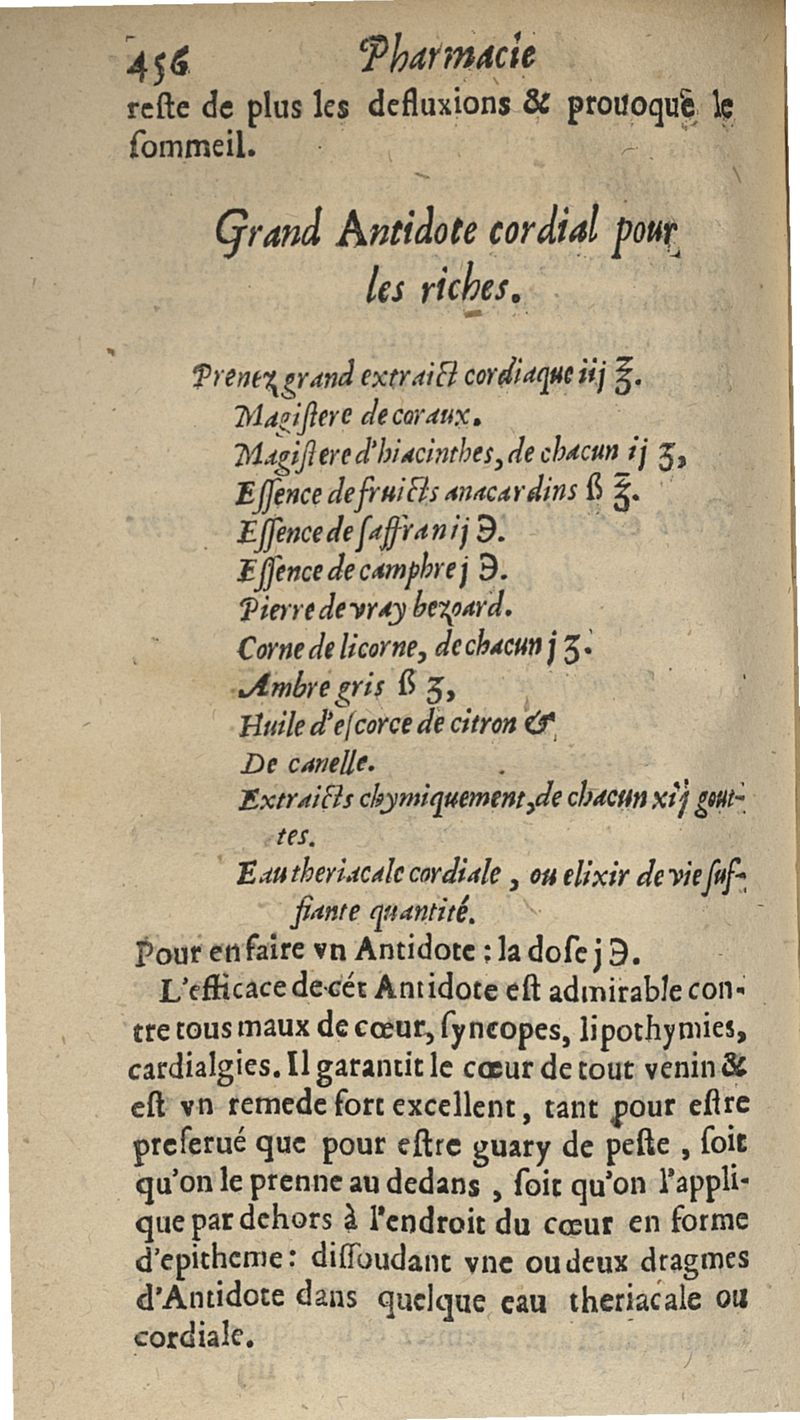 456 Pharmacie
reste de plus les defluxions & prouoque le
sommeil.
Grand Antidote cordial pour
les riches.
Prenez grand extraict cordiaque iij ℥.
Magistere de coraux.
Magistere d'hiacinthes, de chacun ij ʒ,
Essence de fruicts anacardins ß ℥.
Essence de saffran ij ℈.
Essence de camphre j ℈.
Pierre de vray bezoard.
Corne de licorne, de chacun j ʒ.
Ambre gris ß ʒ,
Huile d'escorce de citron &
De canelle.
Extraicts chymiquement, de chacun xij gout-
tes.
Eau theriacale cordiale, ou elixir de vie suf-
fiante quantité.
Pour en faire vn Antidote : la dose j ℈.
L'efficace de cét Antidote est admirable con-
tre tous maux de cœur, syncopes, lipothymies,
cardialgies. Il garantit le cœur de tout venin &
est vn remede fort excellent, tant pour estre
preserué que pour estre guary de peste, soit
qu'on le prenne au dedans, soit qu'on l'appli-
que par dehors à l'endroit du cœur en forme
d'epitheme : dissoudant vne ou deux dragmes
d'Antidote dans quelque eau theriacale ou
cordiale.